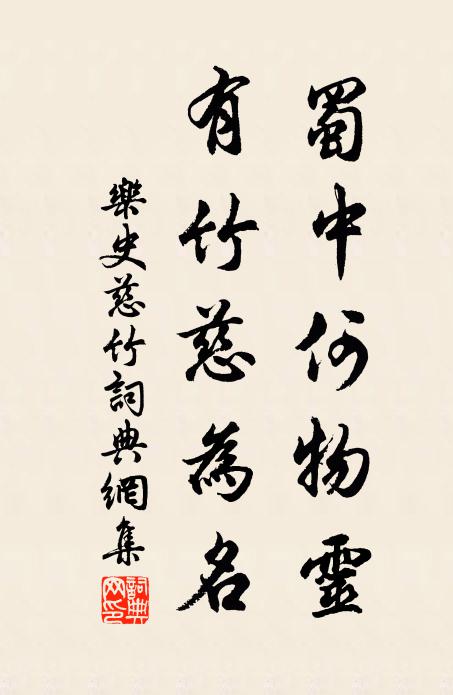 蜀中何物靈
有竹慈為名
樂史慈竹詞典網集
詞典網印